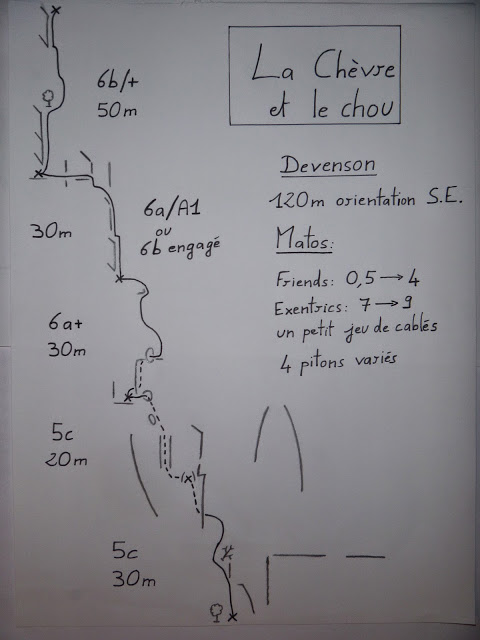 La Chèvre
et le chou
Devenson
120m orientation S.E.
Matos:
Friends: 0,5 → 4
Exentrics: 7 → 9
un petit jeu de cablés
4 pitons variés
6b/+
50m
6a/A1
ou
6b engagé
30m
6a+
30m
5c
20m
5c
30m